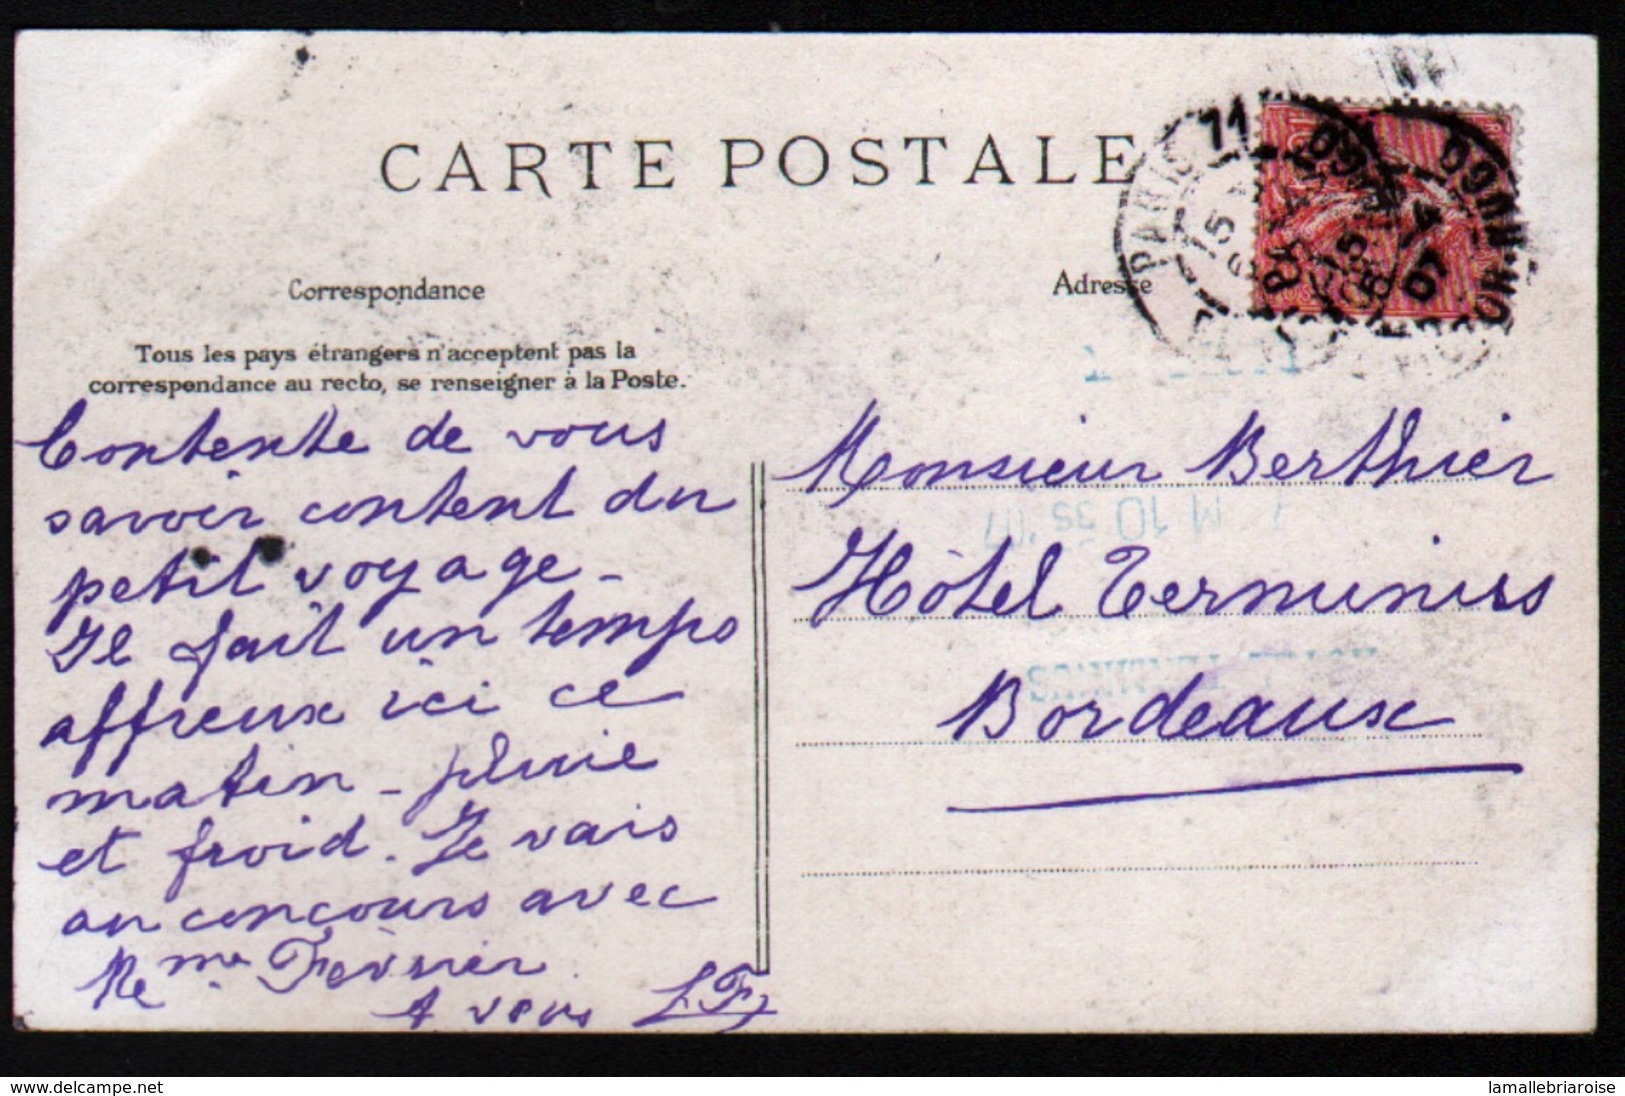 CARTE POSTALE
Correspondance
Adresse
Tous les pays étrangers n'acceptent pas la
correspondance au recto, se renseigner à la Poste.
Contente de vous
savoir content du
petit voyage -
Il fait un temps
affreux ici ce
matin - pluie
et froid. Je vais
au concours avec
Mme Février
A vous L.F.
Monsieur Berthier
Hôtel Terminus
Bordeaux
PARIS 71
M 10 35 '07
TERMINUS
delcampe.net
lamallebriaroise